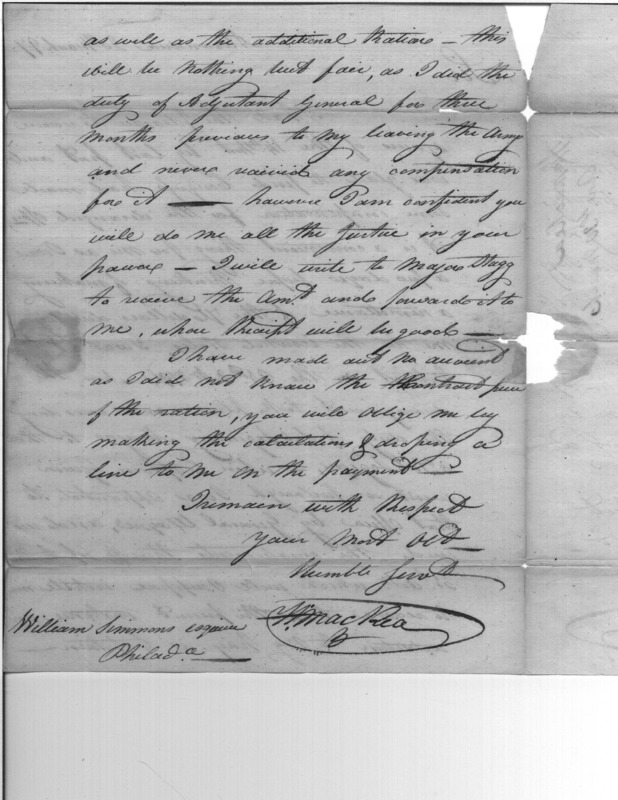 as will as the additional Rations — this
will be Nothing but fair, as I did the
duty of Adjutant General for three
Months previous to my leaving the Army
and never received any compensation
for it — however I am confident you
will do me all the Justice in your
power — I will write to Major Stagg
to receive the Amt and forward it to
me, whose Receipt will be good —
I have made out no account
as I did not Know the Contract price
of the ration, you will Oblige me by
making the calculations & droping a
line to me on the payment —
I remain with Respect
your Most Obt
Humble Servt
Wm MacRea
William Simmons esquire
Philada